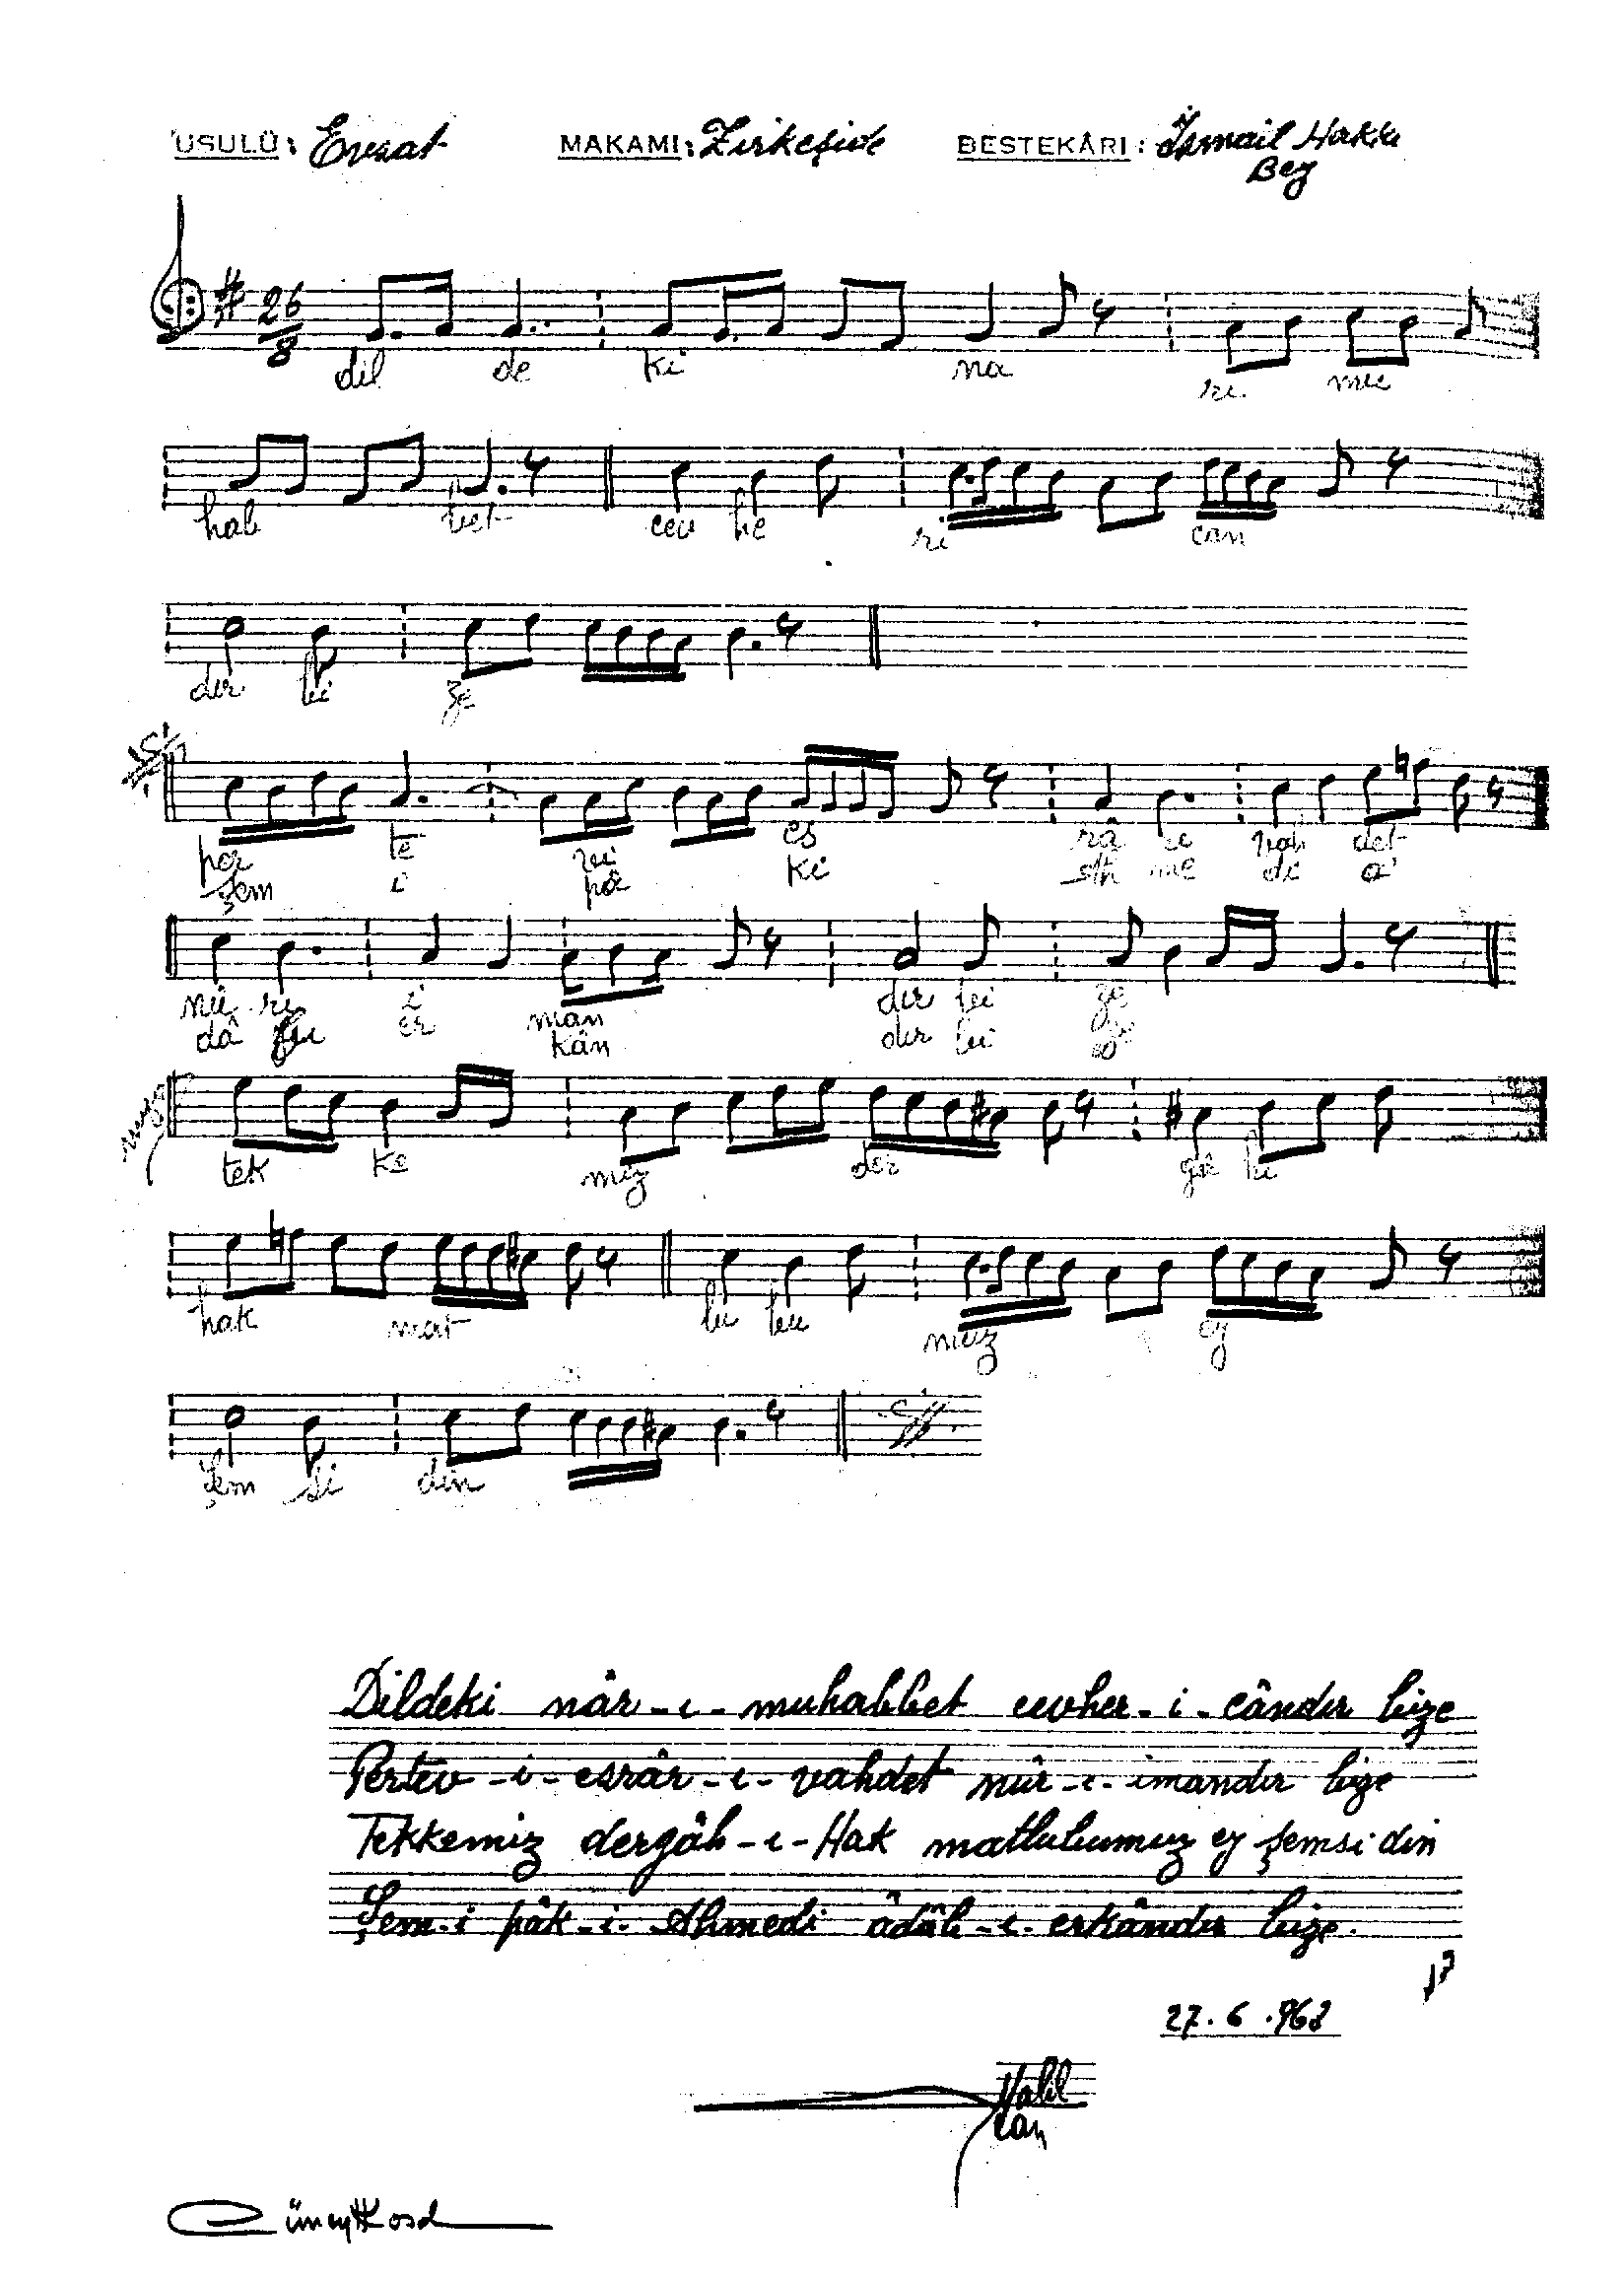 USULÜ: Evsat MAKAMI: Zirkeşide BESTEKÂRI: İsmail Hakkı
Bey
26
8
dil de ki na ri mu
hab bet cev he ri can
dır bi ze
per te vi es râ rı vah det
Şem i pâ ki Ah me di â
nû ri i man dır bi ze
dâ bı er kân dır bi ze
tek ke miz der gâ hi
hak mat lu bu muz ey
Şem si din
Dildeki nâr-ı-muhabbet cevher-i-cândır bize
Pertev-i-esrâr-ı-vahdet nûr-ı-imandır bize
Tekkemiz dergâh-ı-Hak matlubumuz ey şemsi din
Şem-i pâk-i-Ahmedi âdâb-ı-erkândır bize.
27.6.963
Halil
Can
Cüneyt Kosal